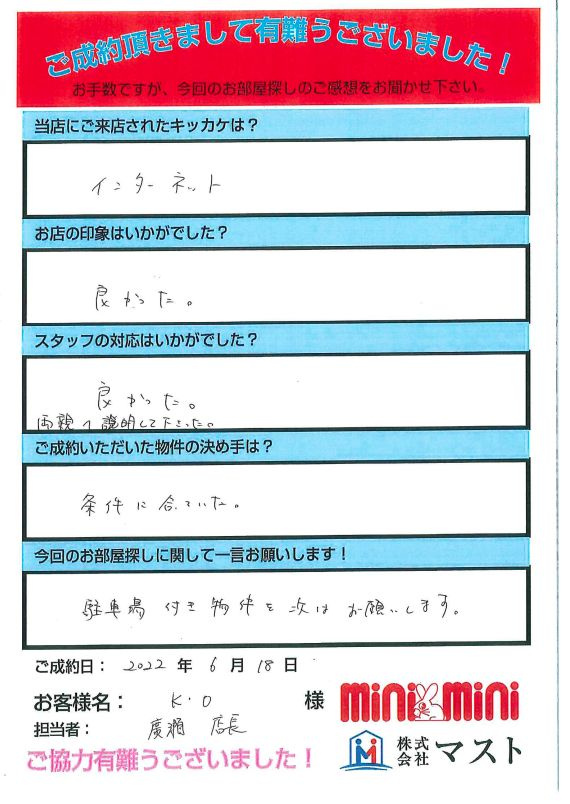 ご成約頂きまして有難うございました！
お手数ですが、今回のお部屋探しのご感想をお聞かせ下さい。
当店にご来店されたキッカケは？
インターネット
お店の印象はいかがでした？
良かった。
スタッフの対応はいかがでした？
良かった。
両親へ説明して下さった。
ご成約いただいた物件の決め手は？
条件に合っていた。
今回のお部屋探しに関して一言お願いします！
駐車場付き物件を次はお願いします。
ご成約日： 2022 年 6 月 18 日
お客様名： K・O 様
minimini
担当者： 廣瀬 店長
株式会社 マスト
ご協力有難うございました！